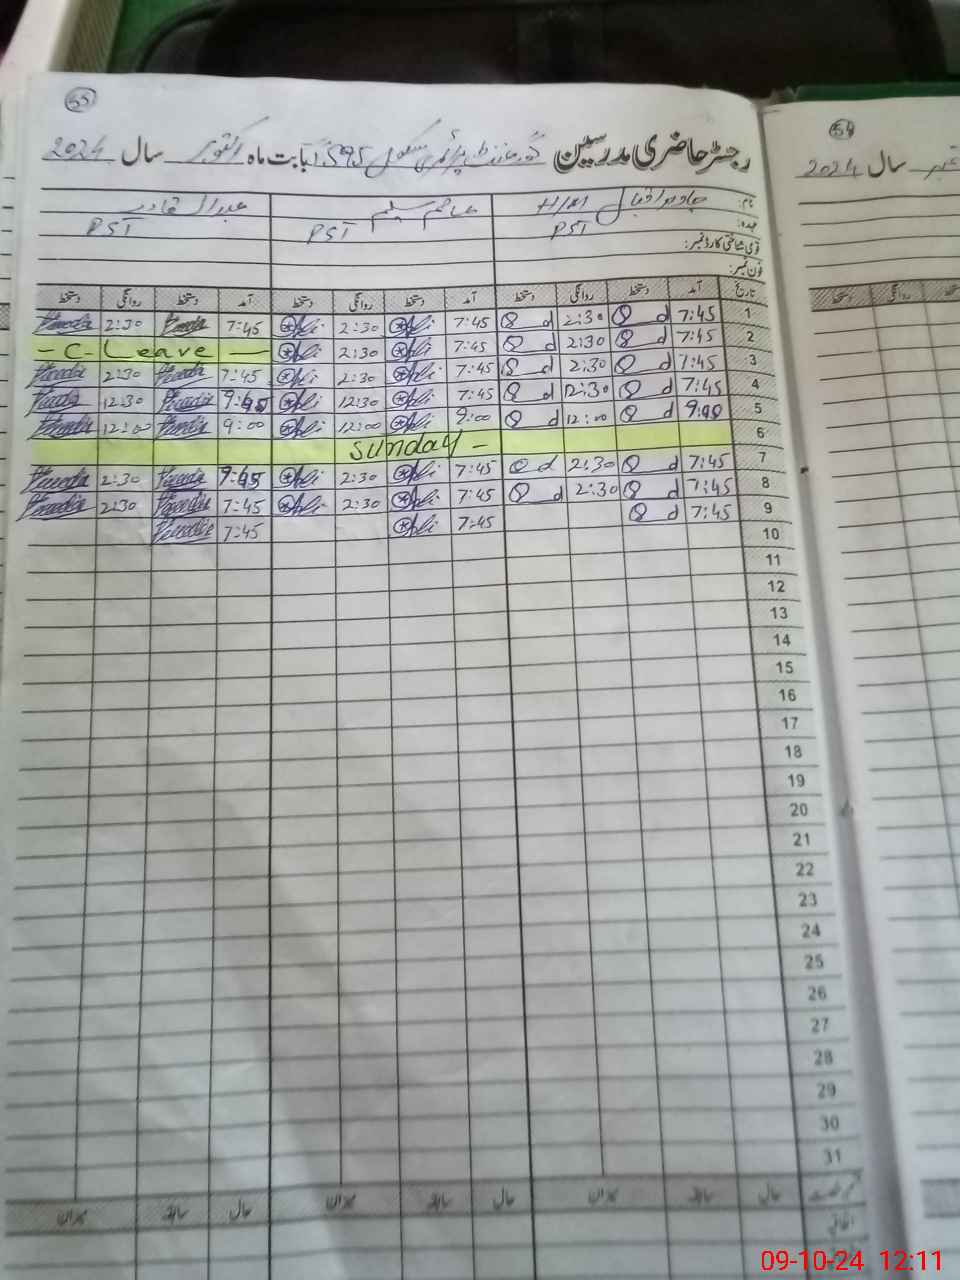 55
رجسٹر حاضری مدرسین گورنمنٹ پرائمری سکول 595 بابت ماہ اکتوبر سال 2024
نام: جاوید اقبال H/M عاصم سلیم عبدالقادر
عہدہ: PST PST PST
قومی شناختی کارڈ نمبر:
فون نمبر:
تاریخ آمد دستخط روانگی دستخط آمد دستخط روانگی دستخط آمد دستخط روانگی دستخط
1 7:45 2:30 7:45 2:30 7:45 2:30
2 7:45 2:30 7:45 2:30 - C- Leave -
3 7:45 2:30 7:45 2:30 7:45 2:30
4 7:45 12:30 7:45 12:30 12:30
5 12:00 9:00 12:00 9:00 12:00
6 Sunday -
7 7:45 2:30 7:45 2:30 2:30
8 7:45 2:30 7:45 2:30 7:45 2:30
9 7:45 7:45 7:45
10
11
12
13
14
15
16
17
18
19
20
21
22
23
24
25
26
27
28
29
30
31
حال سابقہ میزان حال سابقہ میزان حال سابقہ میزان
اتفاقی
54
سال 2024
دستخط روانگی
09-10-24 12:11